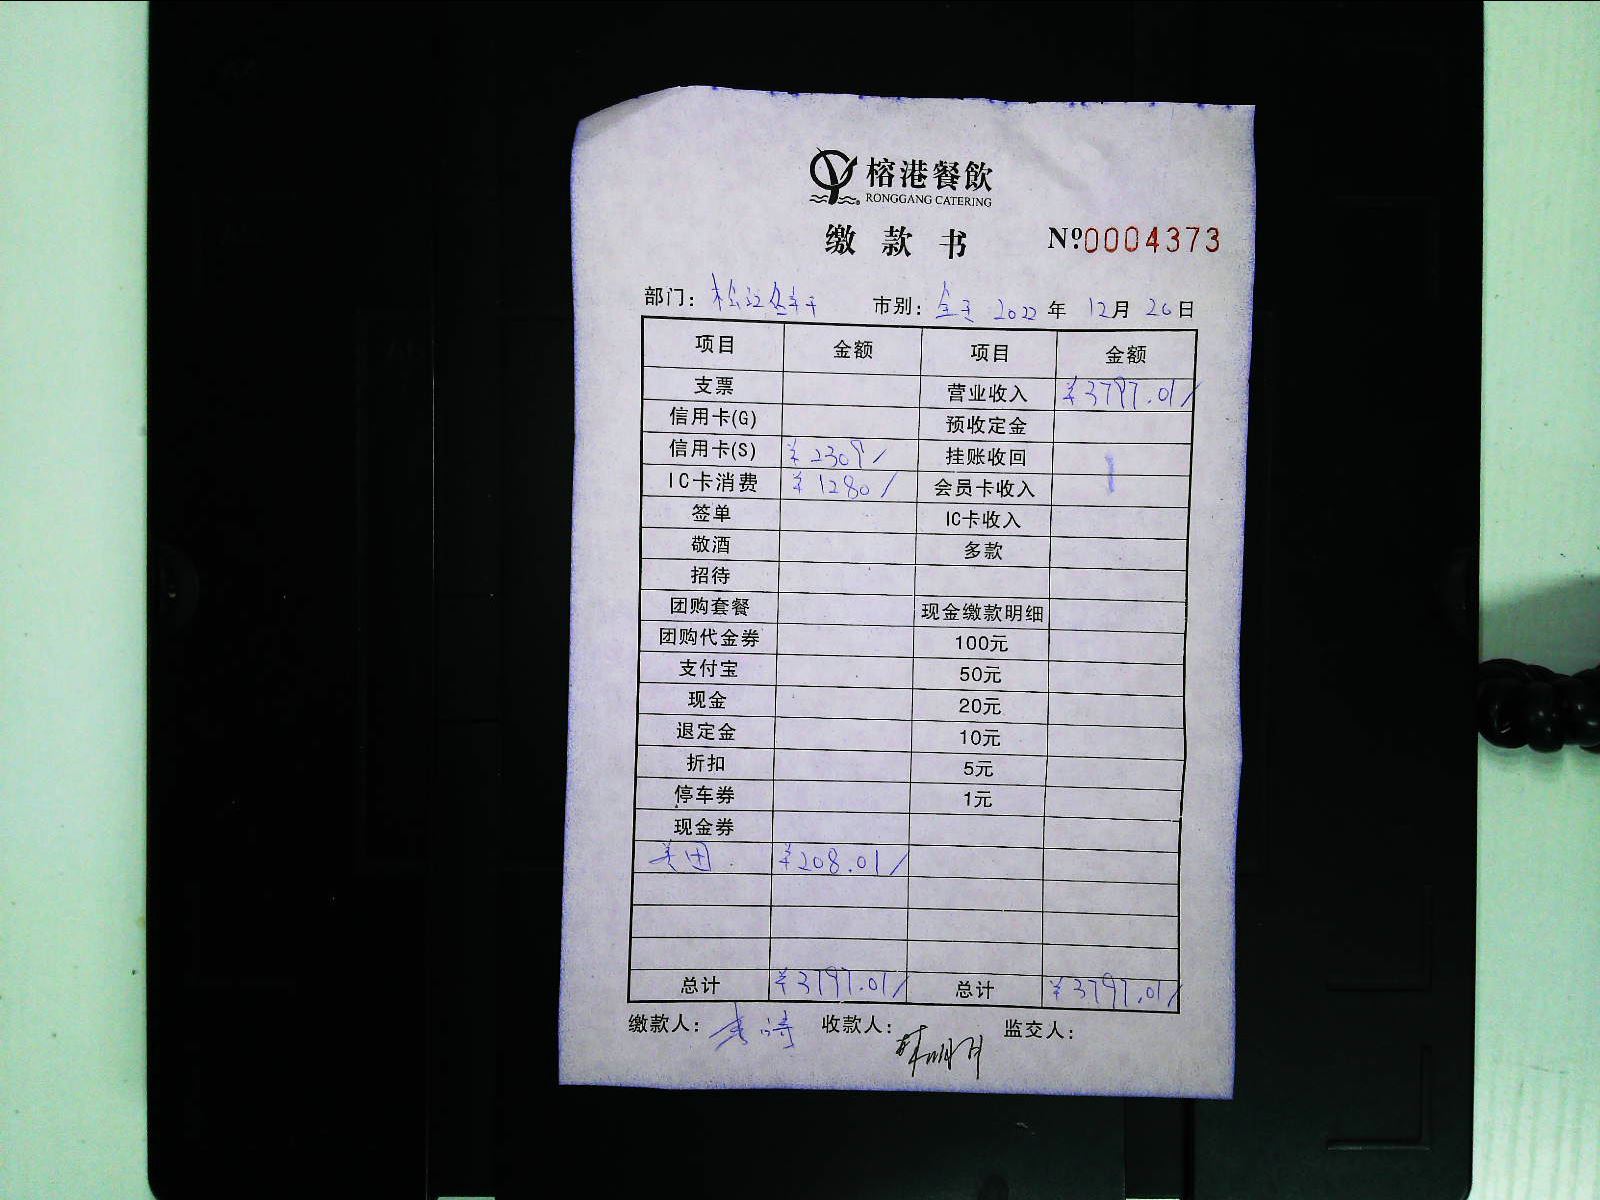 榕港餐飲
RONGGANG CATERING
缴款书 Nº0004373
部门: 松江 市别: 全天 2022年 12月 26日
项目 金额 项目 金额
支票 营业收入 ¥3797.01/
信用卡(G) 预收定金
信用卡(S) ¥2309/ 挂账收回
IC卡消费 ¥1280/ 会员卡收入
签单 IC卡收入
敬酒 多款
招待
团购套餐 现金缴款明细
团购代金券 100元
支付宝 50元
现金 20元
退定金 10元
折扣 5元
停车券 1元
现金券
美团 ¥208.01/
总计 ¥3797.01/ 总计 ¥3797.01/
缴款人: 收款人: 监交人: